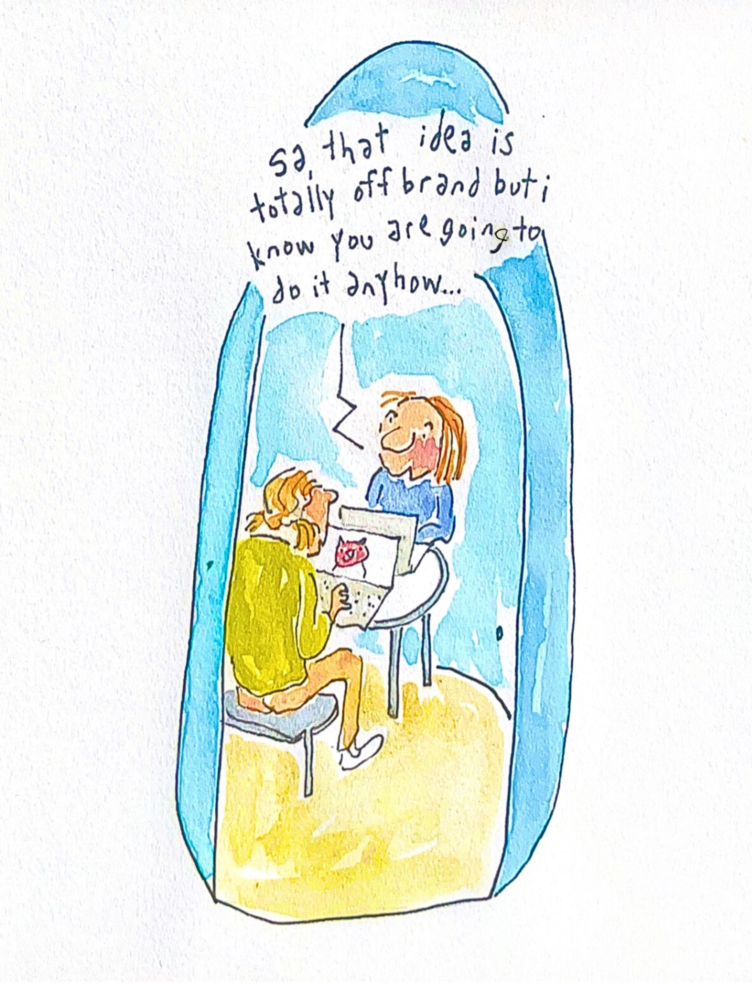 Sa, that idea is
totally off brand but i
know you are going to
do it anyhow...